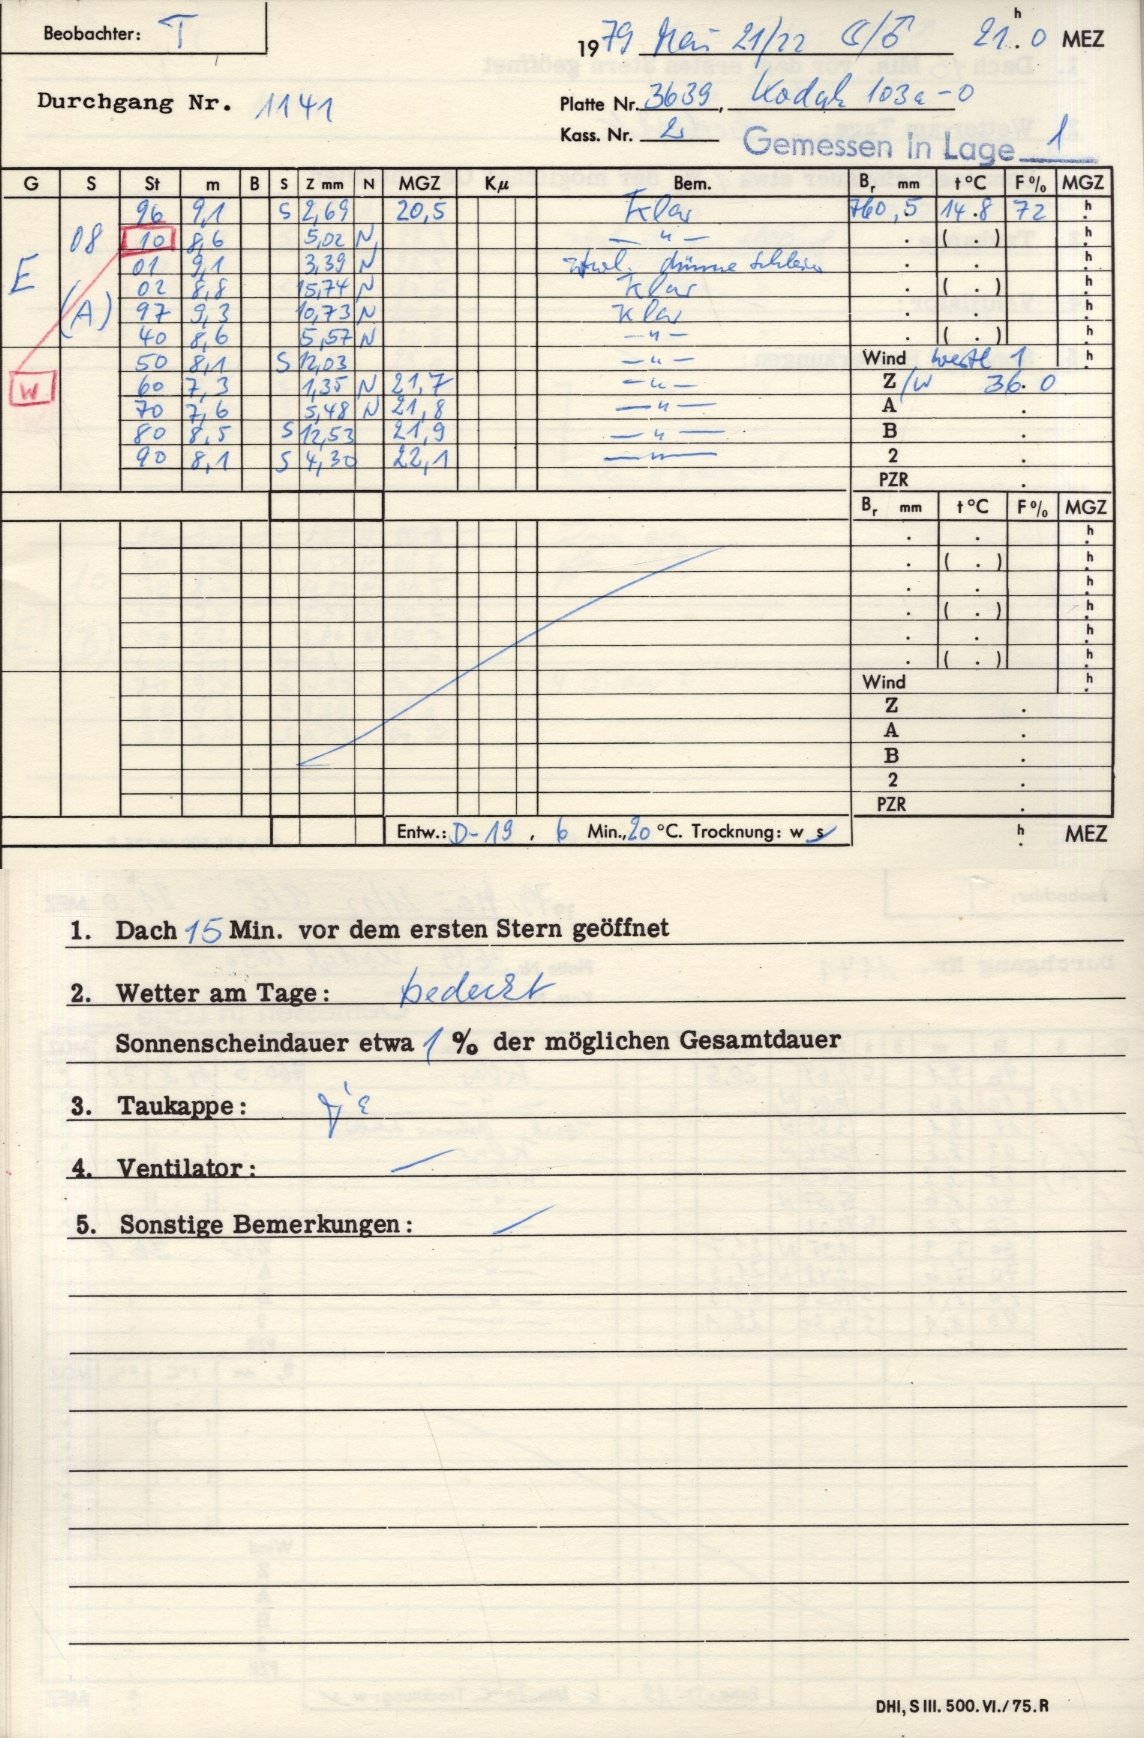 Beobachter: T
1979 Mai 21/22 ☾/♂ 21h.0 MEZ
Durchgang Nr. 1141
Platte Nr. 3639, Kodak 103a-O
Kass. Nr. 2
Gemessen in Lage 1
G S St m B S Z mm N MGZ Kμ Bem. Br mm t °C F % MGZ
96 9,1 S 2,69 20,5 Klar 760,5 14.8 72 h
08 10 8,6 5,02 N — " — . ( . ) h
E 01 9,1 3,39 N dünne . . h
02 8,8 15,74 N Klar . ( . ) h
(A) 97 9,3 10,73 N Klar . . h
40 8,6 5,57 N — " — . ( . ) h
50 8,1 S 12,03 — " — Wind westl 1 h
W 60 7,3 1,35 N 21,7 — " — Z/W 36.0
70 7,6 5,48 N 21,8 — " — A .
80 8,5 S 12,53 21,9 — " — B .
90 8,1 S 4,30 22,1 — " — 2 .
PZR .
Br mm t °C F % MGZ
. . h
. ( . ) h
. . h
. ( . ) h
. . h
. ( . ) h
Wind h
Z .
A .
B .
2 .
PZR .
Entw.: D-19, 6 Min., 20 °C. Trocknung: w s h. MEZ
1. Dach 15 Min. vor dem ersten Stern geöffnet
2. Wetter am Tage: bedeckt
Sonnenscheindauer etwa 1 % der möglichen Gesamtdauer
3. Taukappe: ja
4. Ventilator: —
5. Sonstige Bemerkungen: —
DHI, S III. 500. VI./75. R